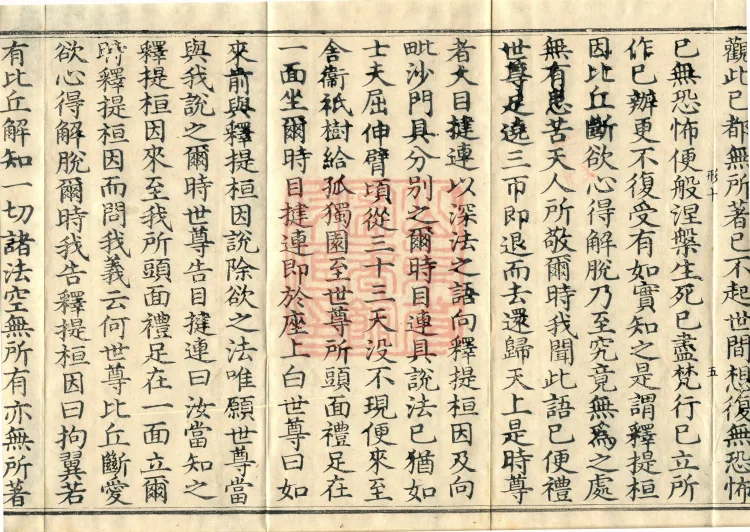 觀此已都無所著已不起世間想復無恐怖
已無恐怖便般涅槃生死已盡梵行已立所
形十
五
作已辦更不復受有如實知之是謂釋提桓
因比丘斷欲心得解脫乃至究竟無為之處
無有患苦天人所敬爾時我聞此語已便禮
世尊足遶三帀即退而去還歸天上是時尊
者大目揵連以深法之語向釋提桓因及向
毗沙門具分別之爾時目連具說法已猶如
士夫屈伸臂頃從三十三天没不現便來至
舍衞祇樹給孤獨園至世尊所頭面禮足在
一面坐爾時目揵連即於座上白世尊曰如
來前與釋提桓因說除欲之法唯願世尊當
與我說之爾時世尊告目揵連曰汝當知之
釋提桓因來至我所頭面禮足在一面立爾
時釋提桓因而問我義云何世尊比丘斷愛
欲心得解脫爾時我告釋提桓因曰拘翼若
有比丘解知一切諸法空無所有亦無所著